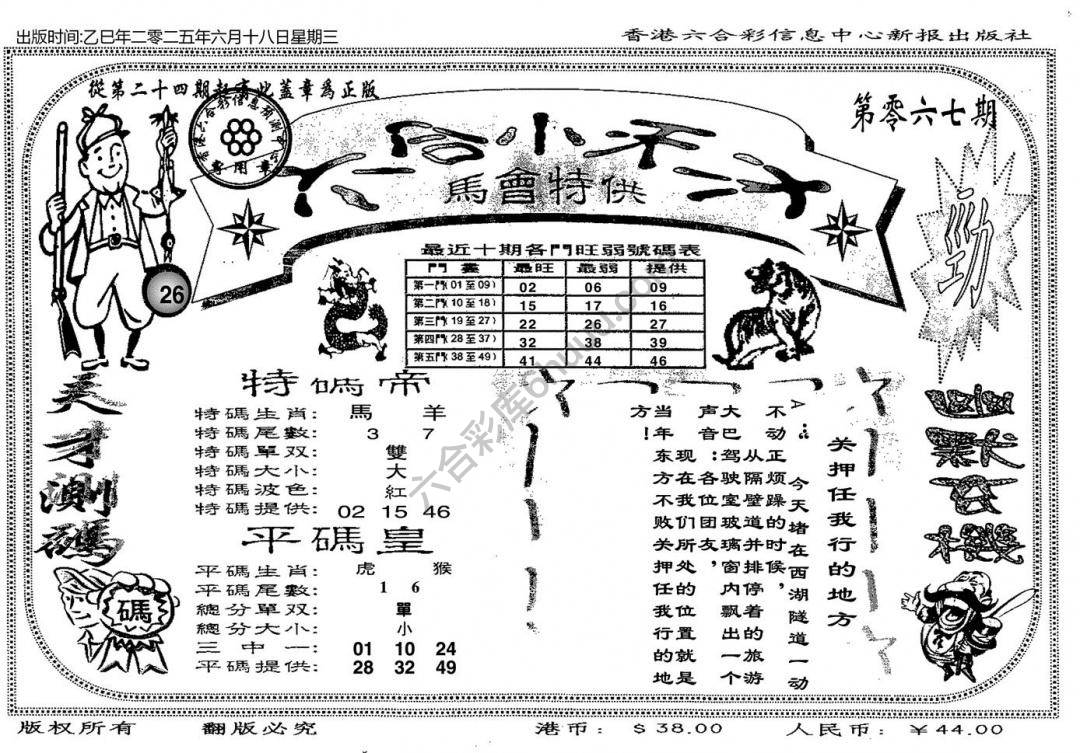 出版时间:乙巳年二零二五年六月十八日星期三
香港六合彩信息中心新报出版社
從第二十四期起憲此蓋章爲正版
專用章
第零六七期
馬會特供
勁
26
最近十期各門旺弱號碼表
門畫 最旺 最弱 提供
第一門(01至09) 02 06 09
第二門(10至18) 15 17 16
第三門(19至27) 22 26 27
第四門(28至37) 32 38 39
第五門(38至49) 41 44 46
天才測碼
特碼帝
特碼生肖: 馬 羊
特碼尾數: 3 7
特碼單双: 雙
特碼大小: 大
特碼波色: 紅
特碼提供: 02 15 46
平碼皇
平碼生肖: 虎 猴
平碼尾數: 1 6
總分單双: 單
總分大小: 小
三中一: 01 10 24
平碼提供: 28 32 49
碼
幽默玄機
关押任我行的地方
A: 今天堵在西湖隧道一动
不动,正烦躁的时候,
从隔壁道并排停着的旅游
大巴驾驶室玻璃窗内飘出一个
声音:各位团友,
现在我们所处的位置就是
当年东方不败关押任我行的地
方!
六合彩库6huuu.com
版权所有
翻版必究
港币: $ 38.00
人民币: ¥ 44.00